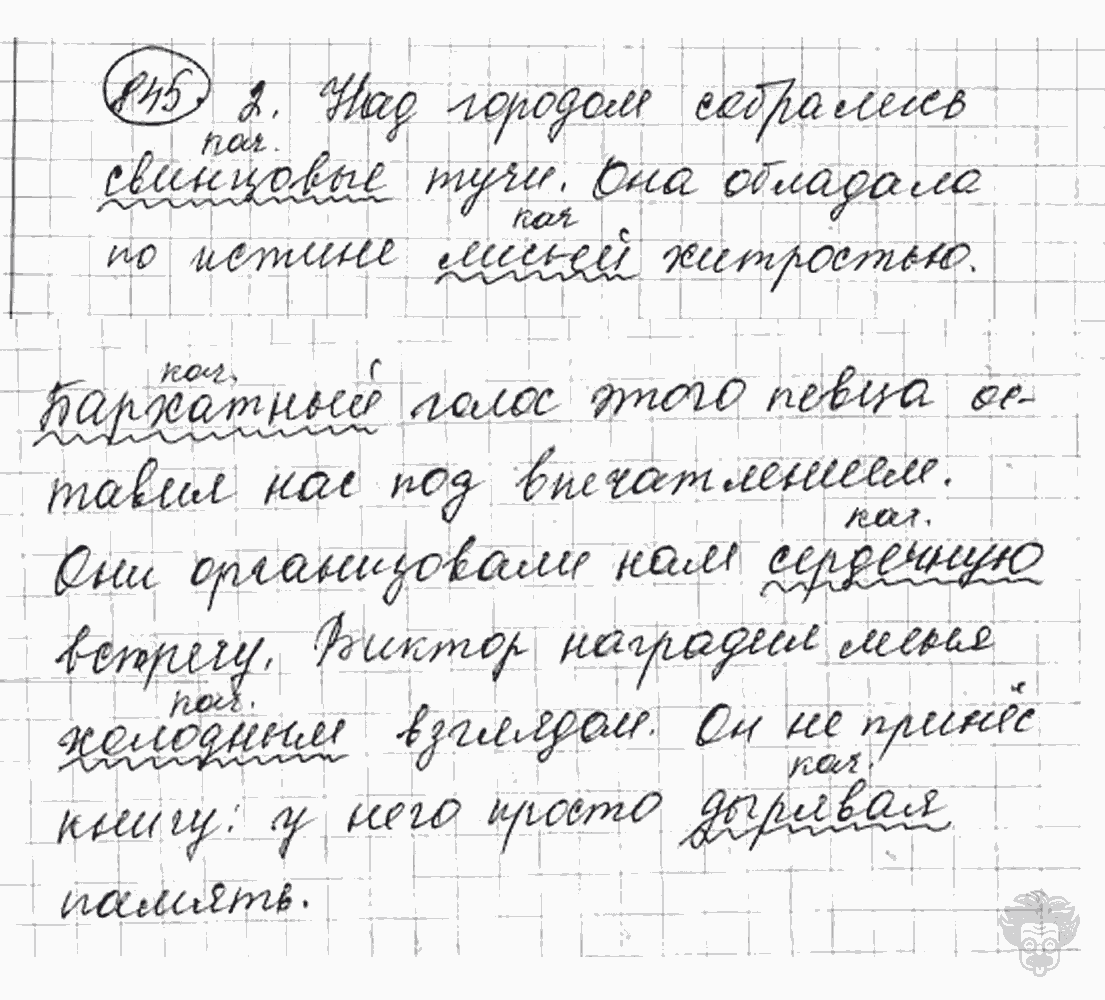 845. 2. Над городом собрались
кач.
свинцовые тучи. Она обладала
кач
по истине лисьей хитростью.
кач.
Бархатный голос этого певца ос-
тавил нас под впечатлением.
кач.
Они организовали нам сердечную
встречу. Виктор наградил меня
кач.
холодным взглядом. Он не принёс
кач.
книгу: у него просто дырявая
память.